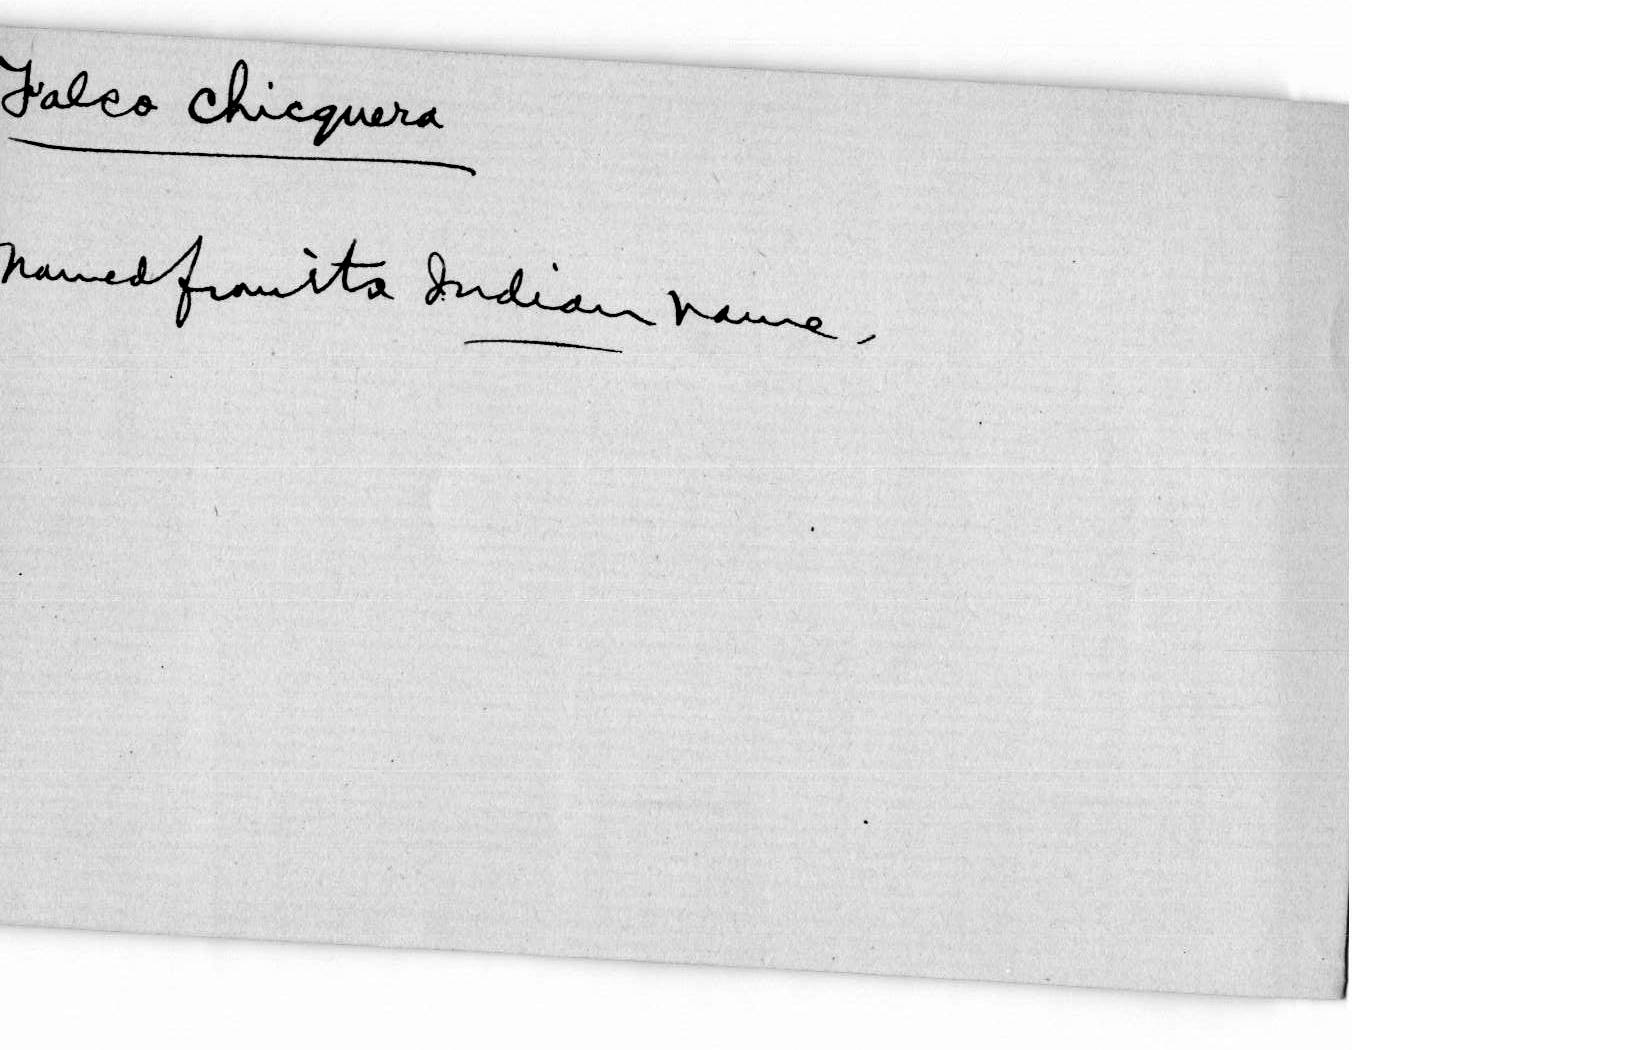 Falco chicquera
named from its Indian name,